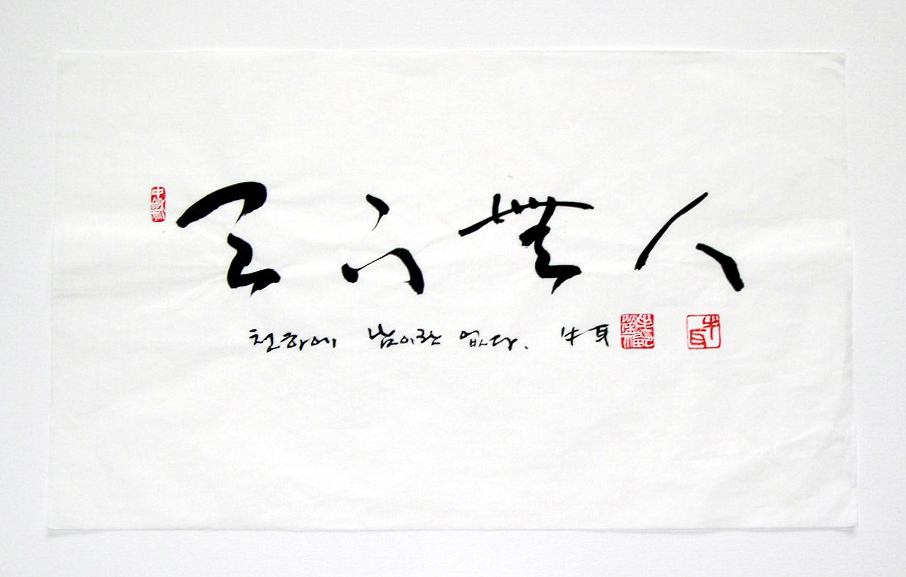 天下無人
천하에 남이란 없다. 牛耳